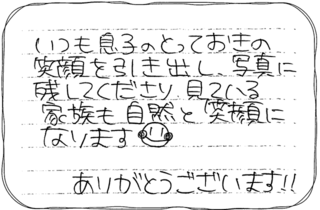 いつも息子のとっておきの
笑顔を引き出し、写真に
残してくださり 見ている
家族も自然と笑顔に
なります
ありがとうございます!!